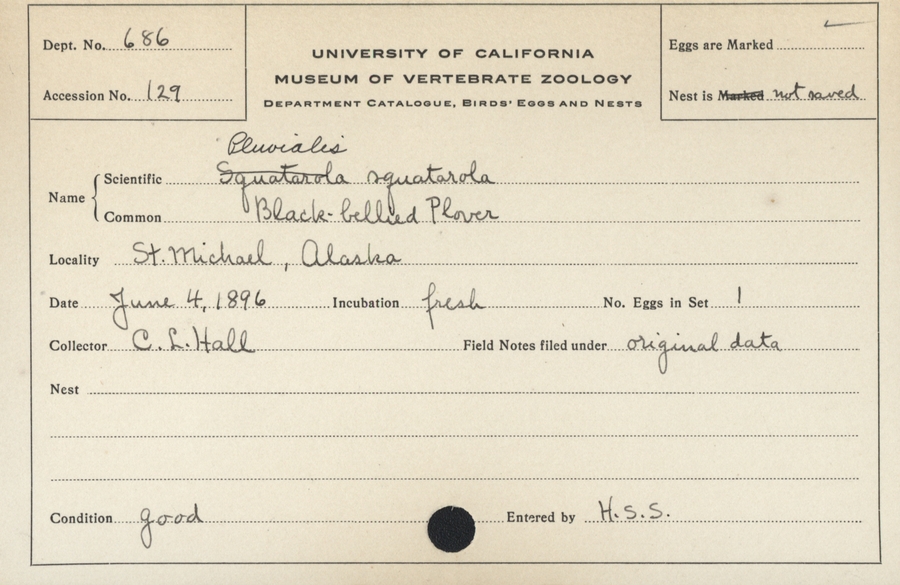 Dept. No. 686
Accession No. 129
UNIVERSITY OF CALIFORNIA
MUSEUM OF VERTEBRATE ZOOLOGY
DEPARTMENT CATALOGUE, BIRDS' EGGS AND NESTS
Eggs are Marked
Nest is Marked not saved
Pluvialis
Name
Scientific Squatarola squatarola
Common Black-bellied Plover
Locality St. Michael, Alaska
Date June 4, 1896 Incubation fresh No. Eggs in Set 1
Collector C. L. Hall Field Notes filed under original data
Nest
Condition good Entered by H.S.S.